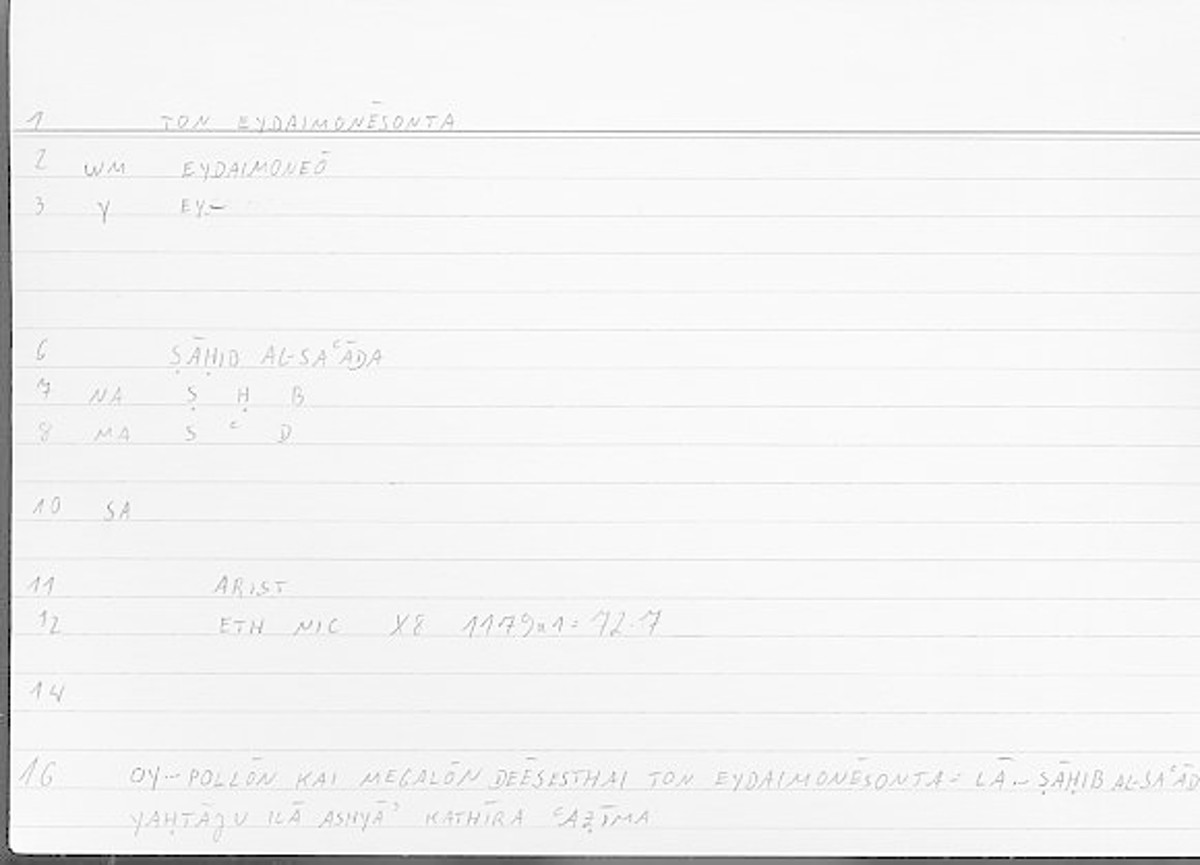 1 TON EYDAIMONĒSONTA
2 WM EYDAIMONEŌ
3 Y EY–
6 ṢĀḤIB AL-SAʿĀDA
7 NA Ṣ Ḥ B
8 MA S ʿ D
10 SA
11 ARIST
12 ETH NIC X8 1179a1 = 72.7
14
16 OY–POLLŌN KAI MEGALŌN DEĒSESTHAI TON EYDAIMONĒSONTA = LĀ–ṢĀḤIB AL-SAʿĀD
YAḤTĀJU ILĀ ASHYĀʾ KATHĪRA ʿAẒĪMA